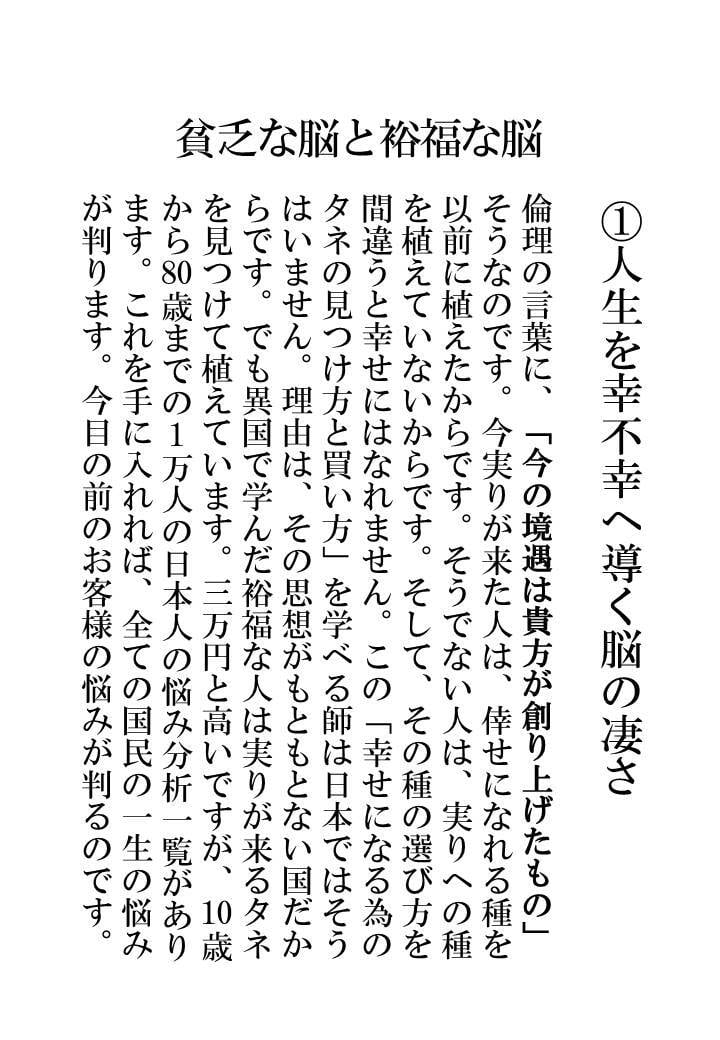 貧乏な脳と裕福な脳
①人生を幸不幸へ導く脳の凄さ
倫理の言葉に、「今の境遇は貴方が創り上げたもの」
そうなのです。今実りが来た人は、倖せになれる種を
以前に植えたからです。そうでない人は、実りへの種
を植えていないからです。そして、その種の選び方を
間違うと幸せにはなれません。この「幸せになる為の
タネの見つけ方と買い方」を学べる師は日本ではそう
はいません。理由は、その思想がもともとない国だか
らです。でも異国で学んだ裕福な人は実りが来るタネ
を見つけて植えています。三万円と高いですが、10歳
から80歳までの１万人の日本人の悩み分析一覧があり
ます。これを手に入れれば、全ての国民の一生の悩み
が判ります。今目の前のお客様の悩みが判るのです。